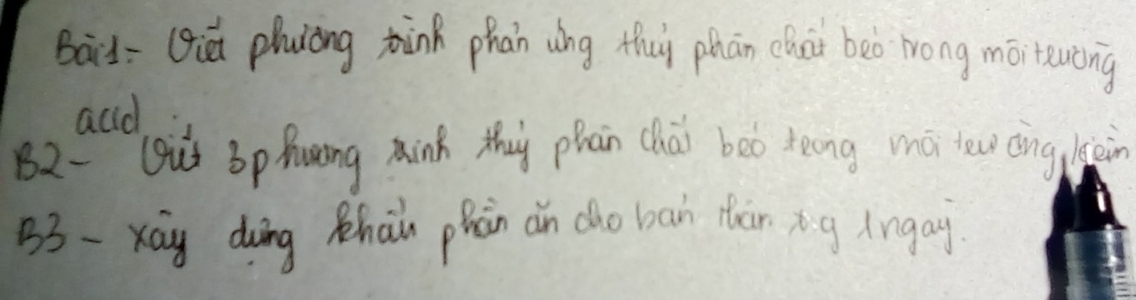 Bài 1 - Viết phương trình phản ứng thuỷ phân chất béo trong môi trường
acid
B2 - Viết 3 phương trình thuỷ phân chất béo trong môi trường kiềm
B3 - xây dựng khẩu phần ăn cho bản thân 1 ngày.